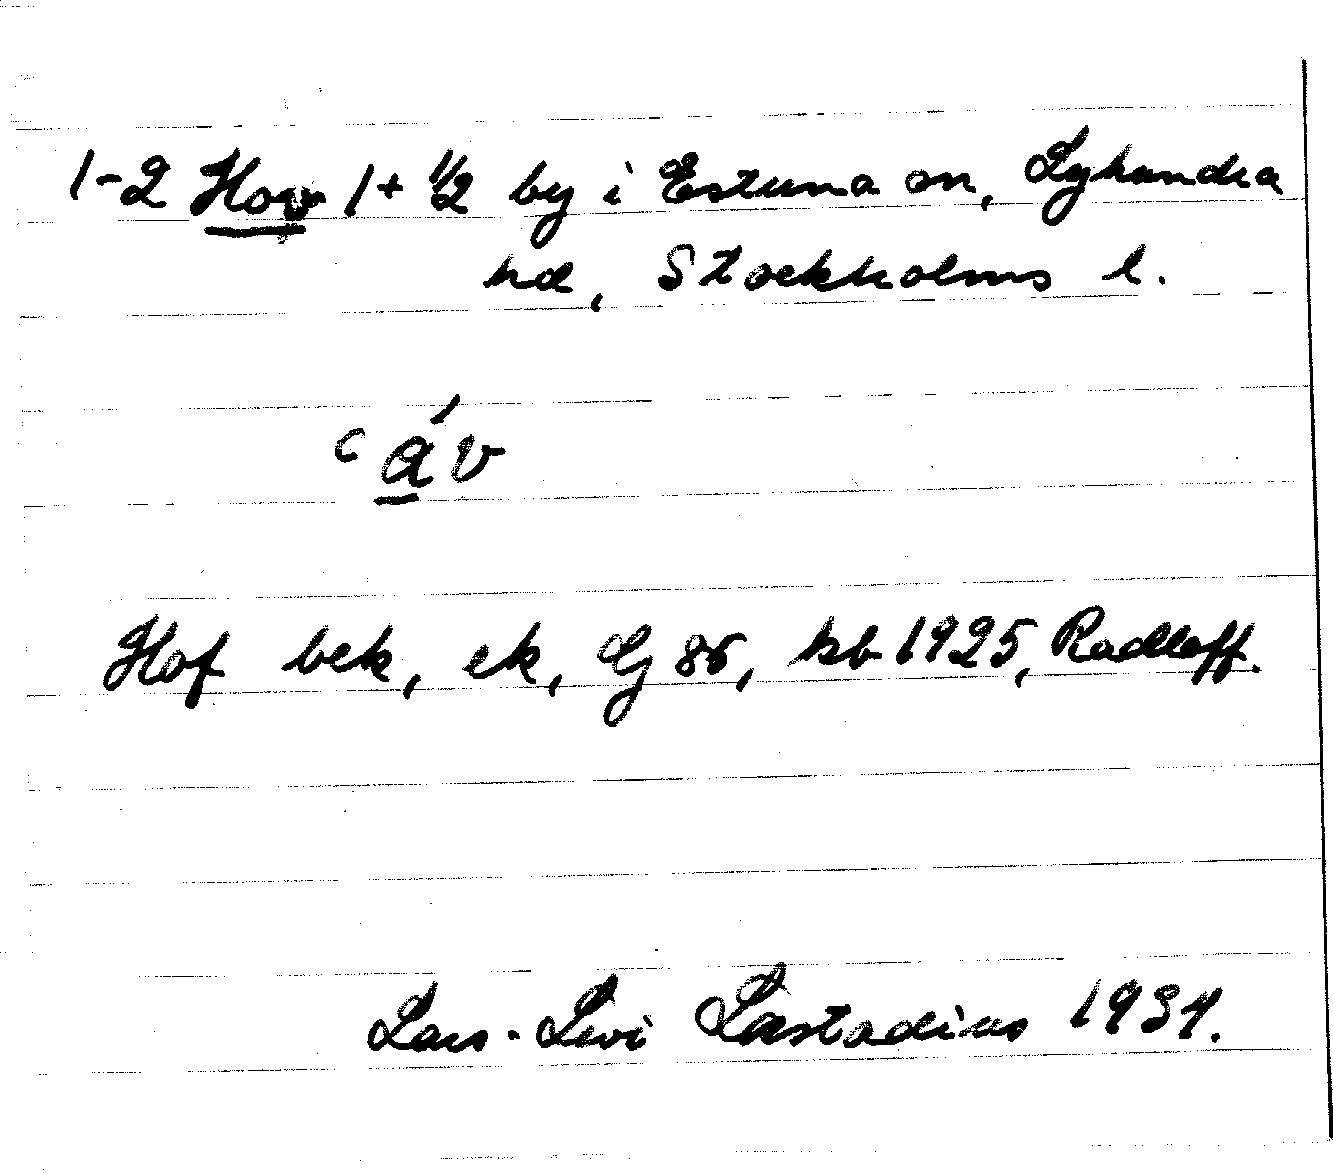 1-2 Hov 1+ 1/2 by i Estuna sn, Lyhundra
hd, Stockholms l.
ʿa̲ʹv
Hof bek, ek, Gj 86, kb 1925, Radloff.
Lars-Levi Læstadius 1934.